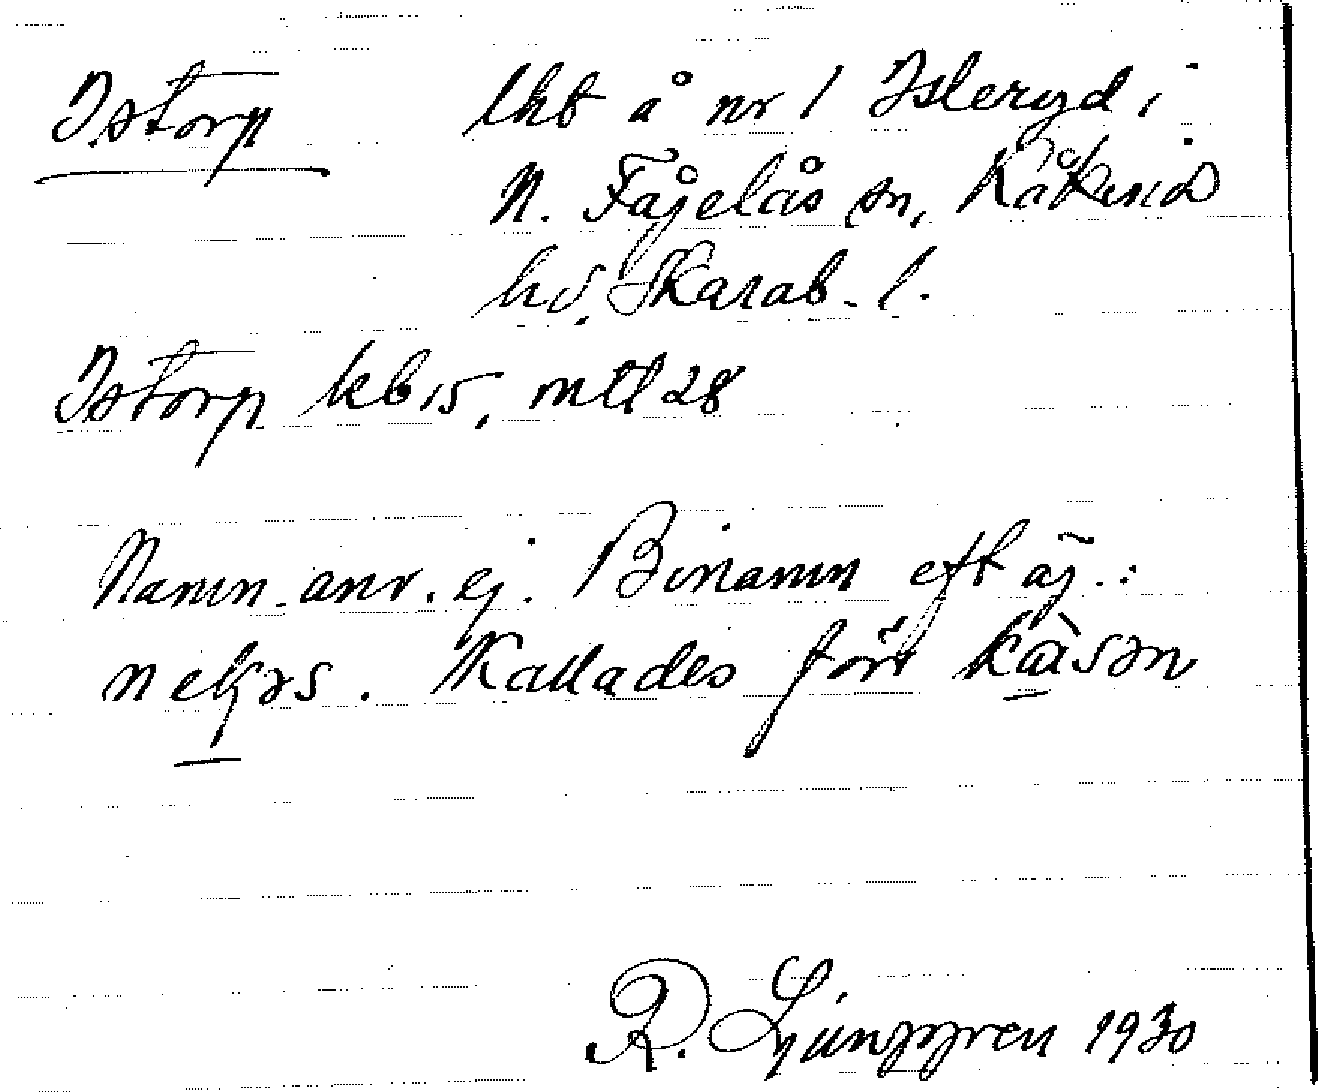 Istorp lht å nr 1 Isleryd i
N. Fågelås sn, Kåkinds
hd. Skarab. l.
Istorp kb 15, mtl 28
Namn. anv. ej. Binamn eft äg.:
Kallades förr
R. Ljunggren 1930